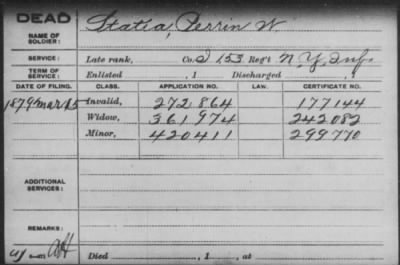 DEAD
NAME OF SOLDIER: Statia, Perrin W.
SERVICE: Late rank, Co. I 153 Reg't N.Y. Inf.
TERM OF SERVICE: Enlisted , 1 Discharged , 1
DATE OF FILING. CLASS. APPLICATION NO. LAW. CERTIFICATE NO.
1879 Mar 15 Invalid, 272864 177144
Widow, 361974 242082
Minor, 420411 299770
ADDITIONAL SERVICES:
REMARKS:
Died , 1 , at